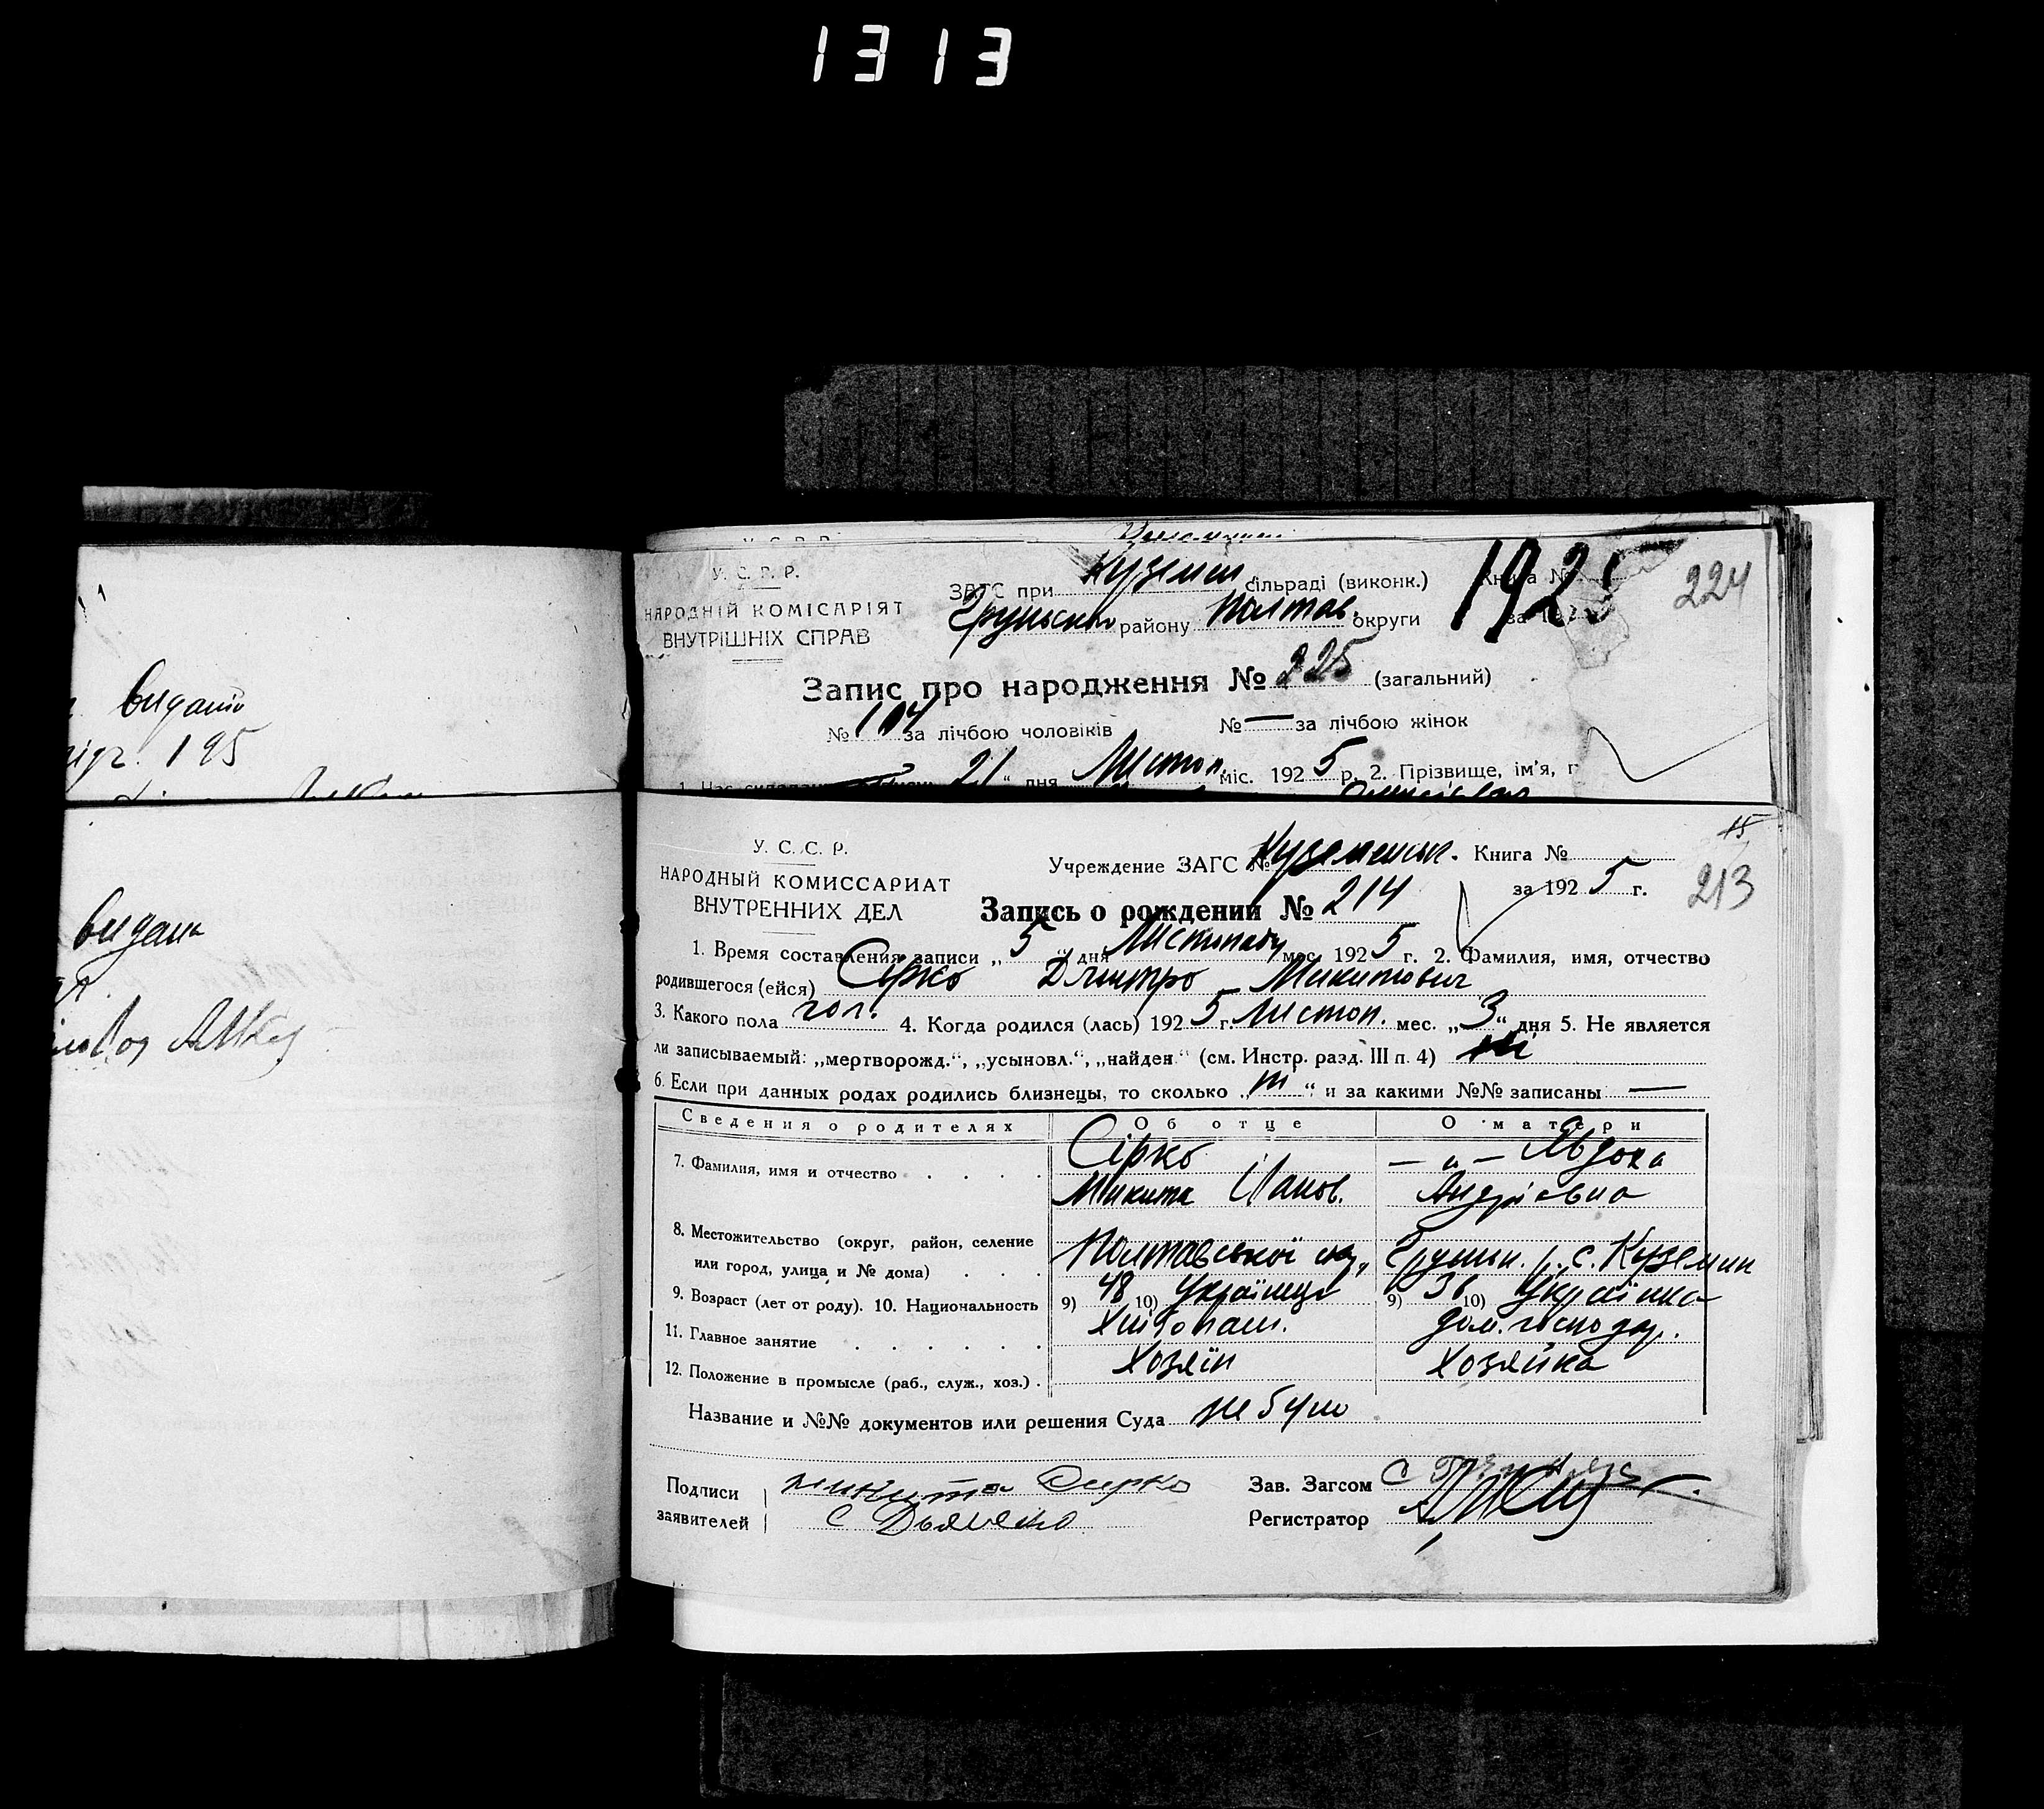 1313
У. С. Р. Р.
НАРОДНІЙ КОМІСАРІЯТ
ВНУТРІШНІХ СПРАВ
ЗАГС при Куземен. сільраді (виконк.) Книга №
Груньсько району Полтав. округи за 192
1925
224
Запис про народження № 225 (загальний)
№ 104 за лічбою чоловіків № — за лічбою жінок
21 " дня Листоп. міс. 1925 р. 2. Прізвище, ім'я,
видано
195
видана
У. С. С. Р.
НАРОДНЫЙ КОМИССАРИАТ
ВНУТРЕННИХ ДЕЛ
Учреждение ЗАГС № Куземенськ. Книга №
за 1925 г.
15
213
Запись о рождении № 214
1. Время составления записи „5" дня Листопаду мес. 1925 г. 2. Фамилия, имя, отчество
родившегося (ейся) Сірко Дмитро Микитович
3. Какого пола чол. 4. Когда родился (лась) 1925 г. Листоп. мес. „3" дня 5. Не является
ли записываемый: „мертворожд.", „усыновл.", „найден." (см. Инстр. разд. III п. 4) ні
6. Если при данных родах родились близнецы, то сколько „ " и за какими №№ записаны —
Сведения о родителях Об отце О матери
7. Фамилия, имя и отчество . . . . Сірко — " — Явдоха
Микита Панов. Андріівна
8. Местожительство (округ, район, селение
или город, улица и № дома) . . . Полтавської ок., Груньк. р. с. Куземин
9. Возраст (лет от роду). 10. Национальность 9) 48 10) Українець 9) 36 10) Українка
11. Главное занятие . . . . . . Хлібопаш. дом. господар.
12. Положение в промысле (раб., служ., хоз.) . Хозяїн Хозяйка
Название и №№ документов или решения Суда не було
Подписи
заявителей
микита Сирко
С Дьяченко
Зав. Загсом
Регистратор